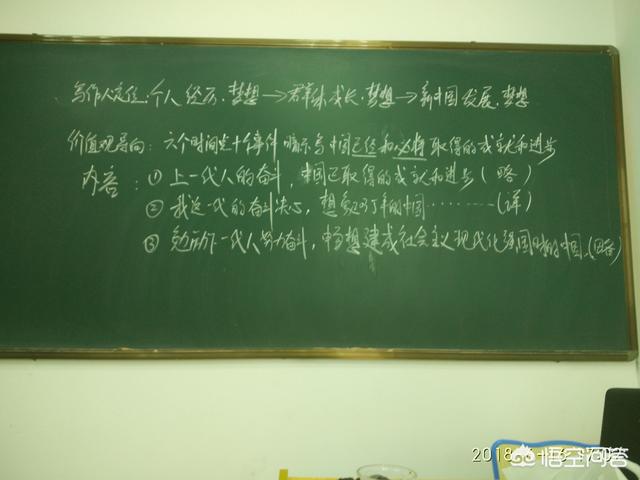 写作人定位:个人经历、梦想→群体成长、梦想→新中国发展、梦想
价值观导向:六个时间点十个事件暗示写中国已经和必将取得的成就和进步
内容:①上一代人的奋斗,中国已取得的成就和进步(略)
②我这一代的奋斗决心,想象2035年的中国………(详)
③勉励下一代人努力奋斗,畅想建成社会主义现代化强国时的中国(略)
2018
悟空问答